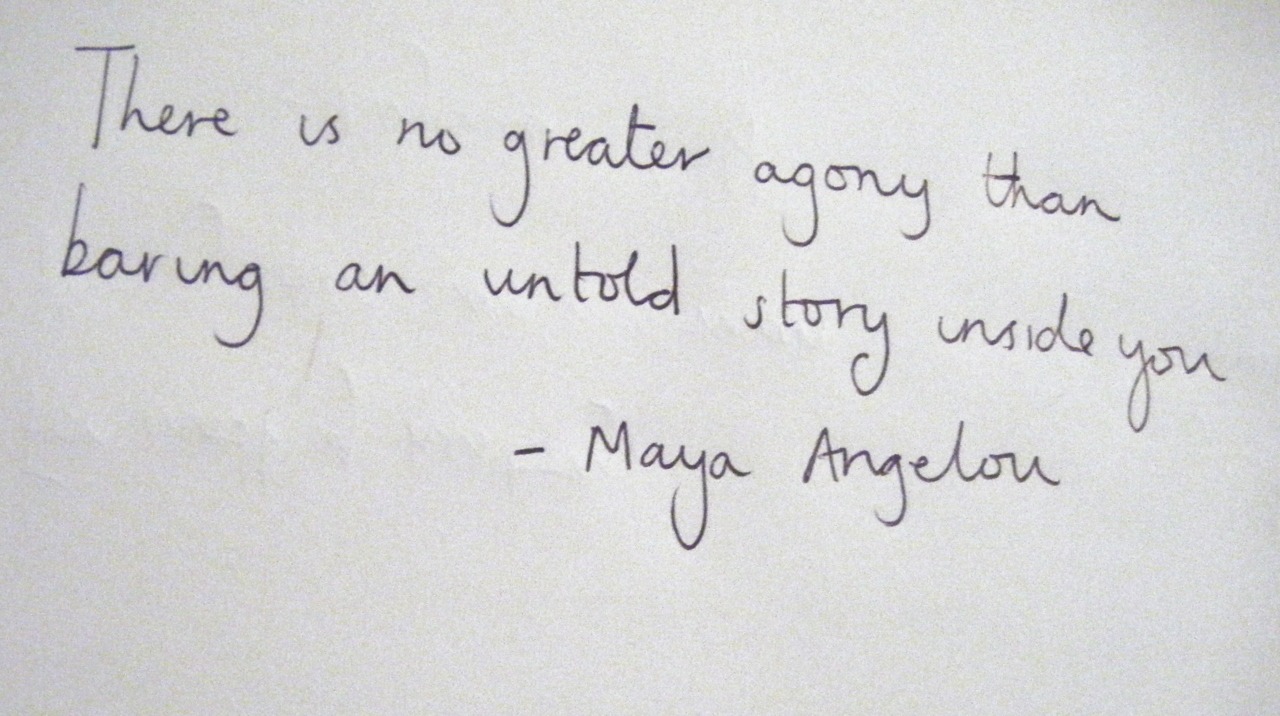 There is no greater agony than
baring an untold story inside you
- Maya Angelou